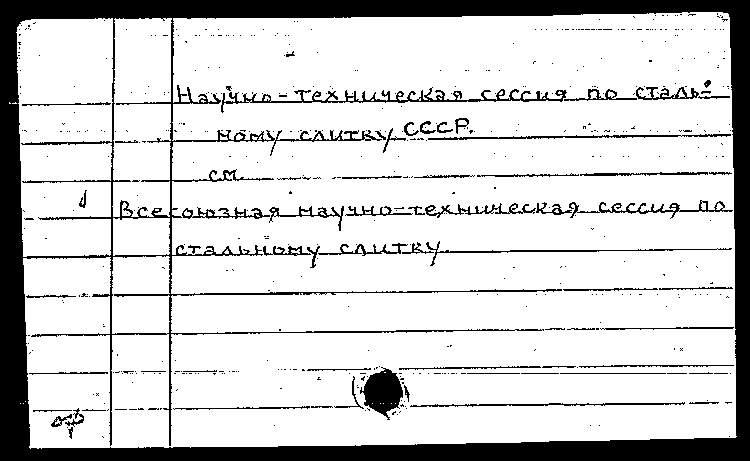 Научно-техническая сессия по сталь-
ному слитку СССР.
см.
Всесоюзная научно-техническая сессия по
стальному слитку.